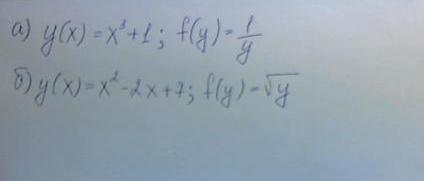 а) y(x) = x³+1; f(y) = 1/y
б) y(x) = x²-2x+7; f(y) = √y